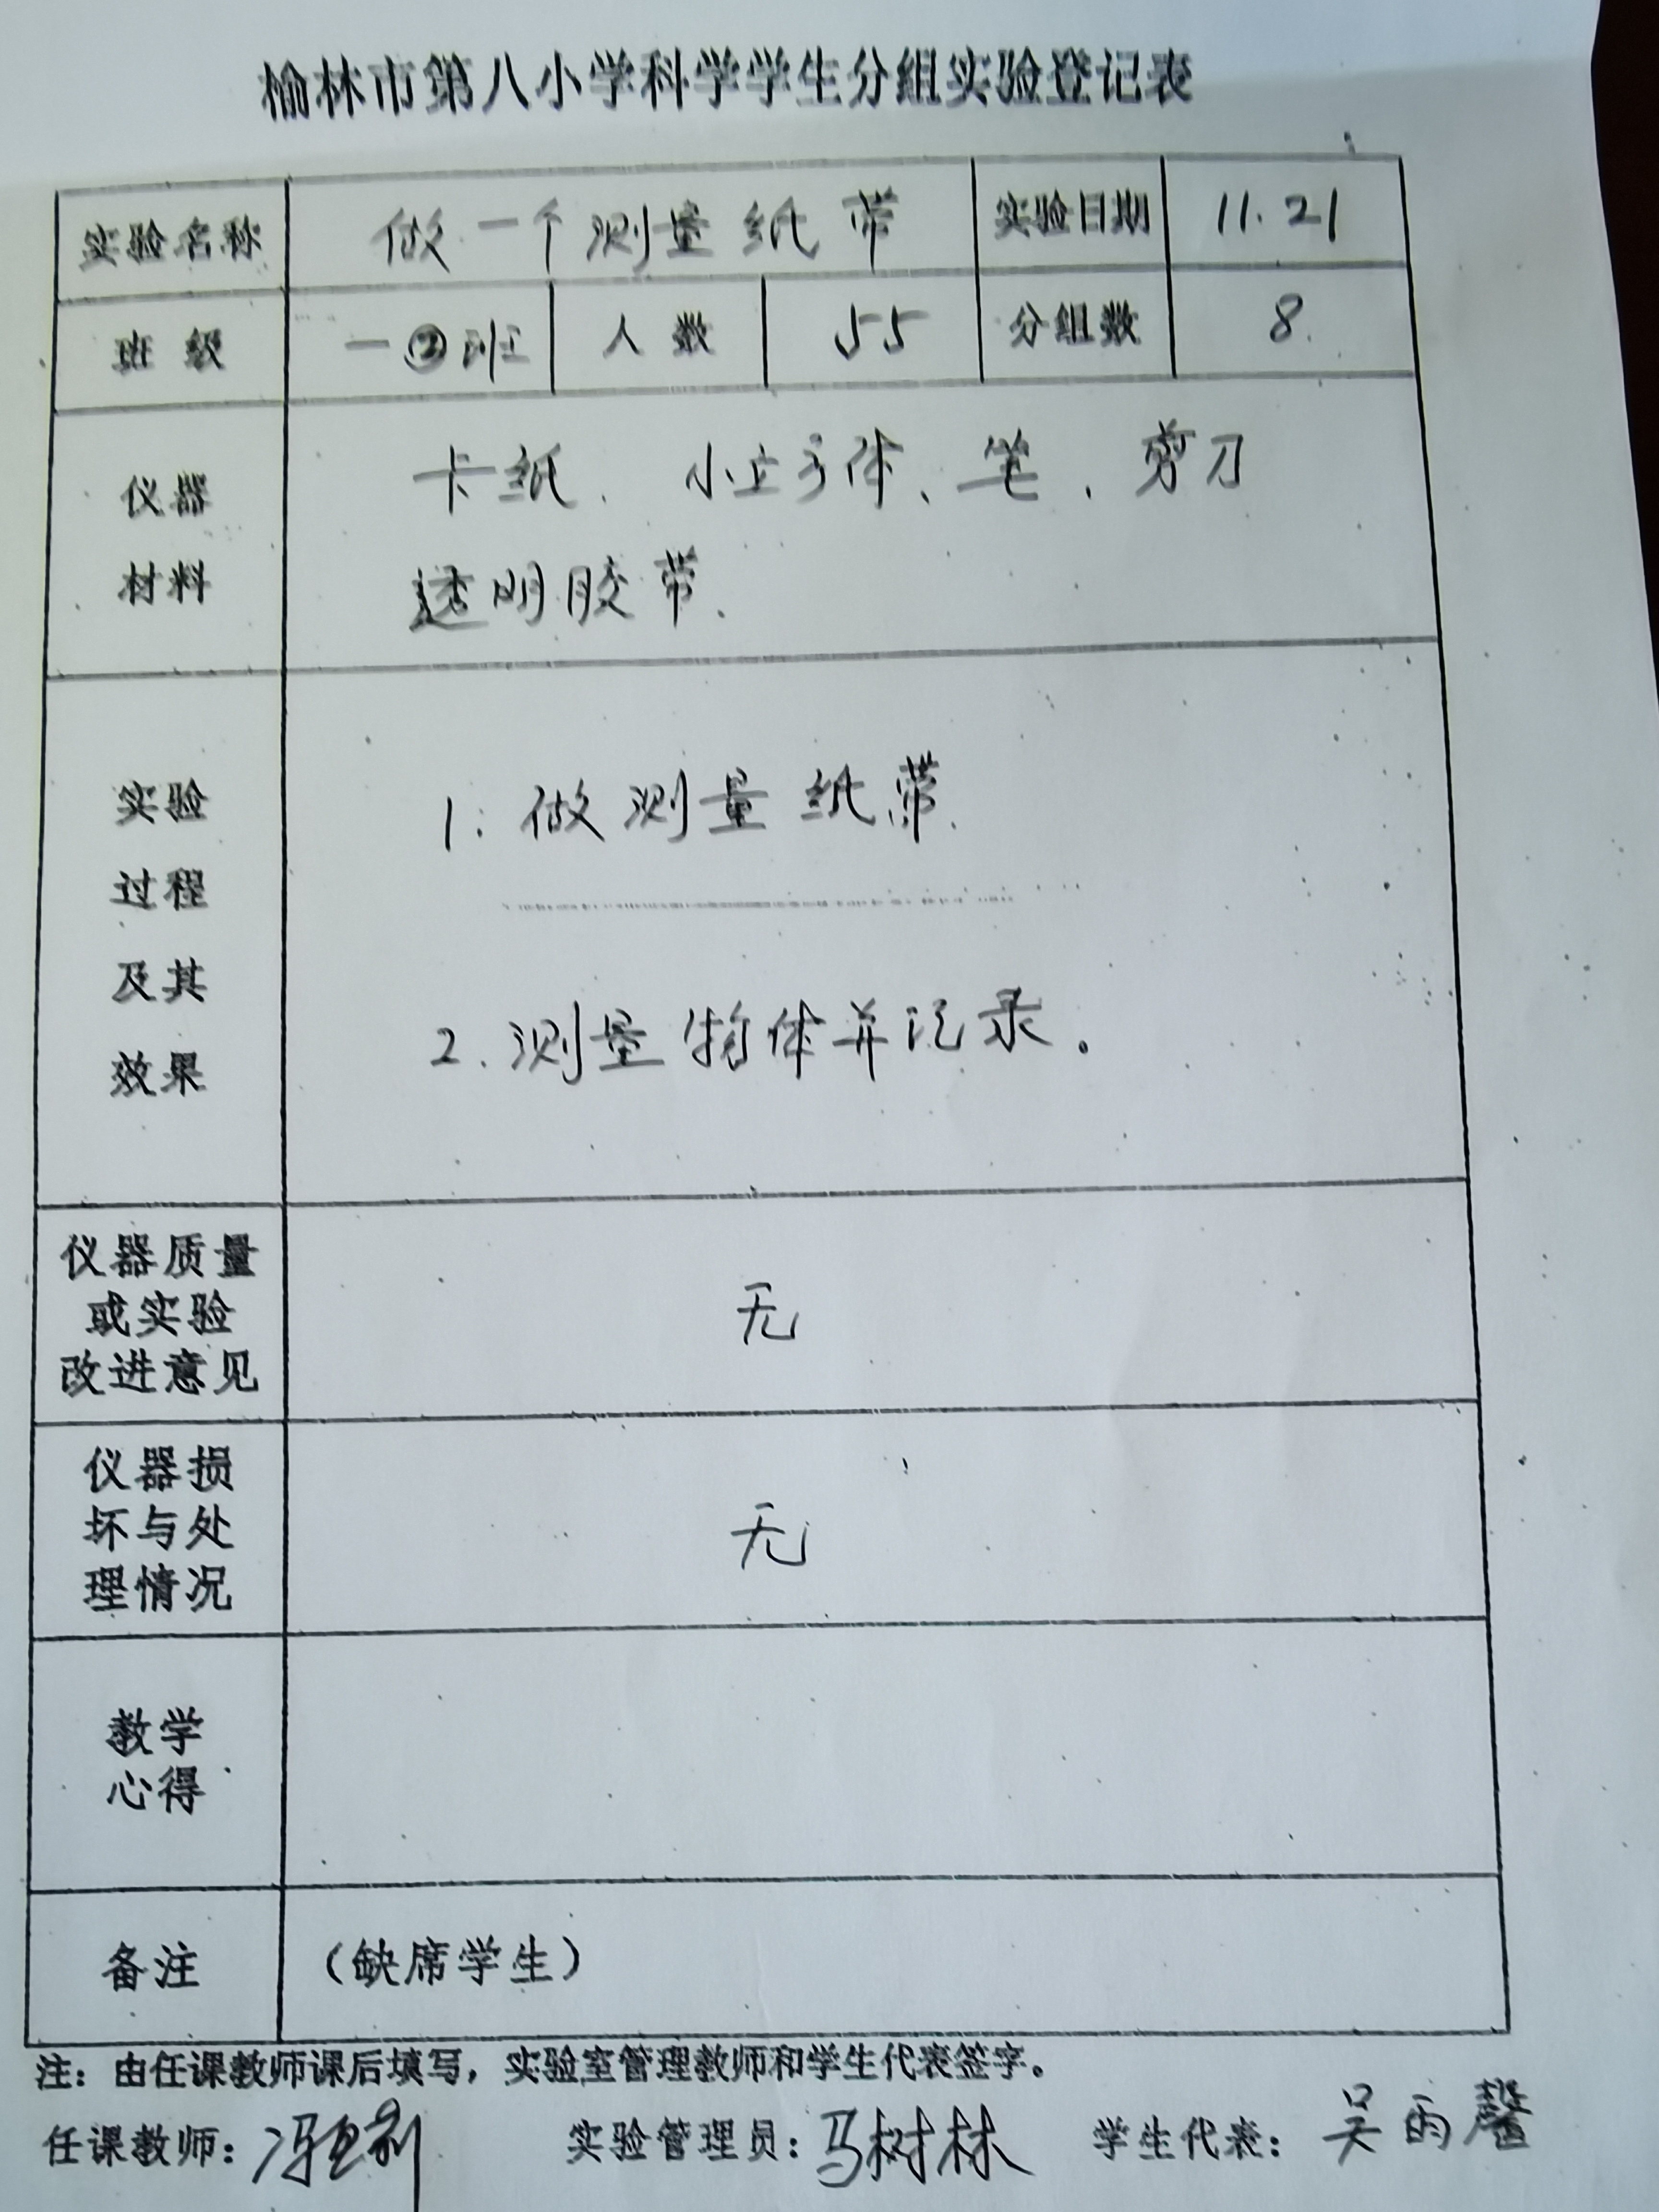 榆林市第八小学科学学生分组实验登记表
实验名称 做一个测量纸带 实验日期 11.21
班级 一②班 人数 55 分组数 8.
仪器
材料
卡纙、小立方体、笔、剪刀
透明胶带.
实验
过程
及其
效果
1.做测量纸带.
2.测量物体并记录。
仪器质量
或实验
改进意见
无
仪器损
坏与处
理情况
无
教学
心得
备注 (缺席学生)
注：由任课教师课后填写，实验室管理教师和学生代表签字。
任课教师： 实验管理员：马树林 学生代表：吴雨馨